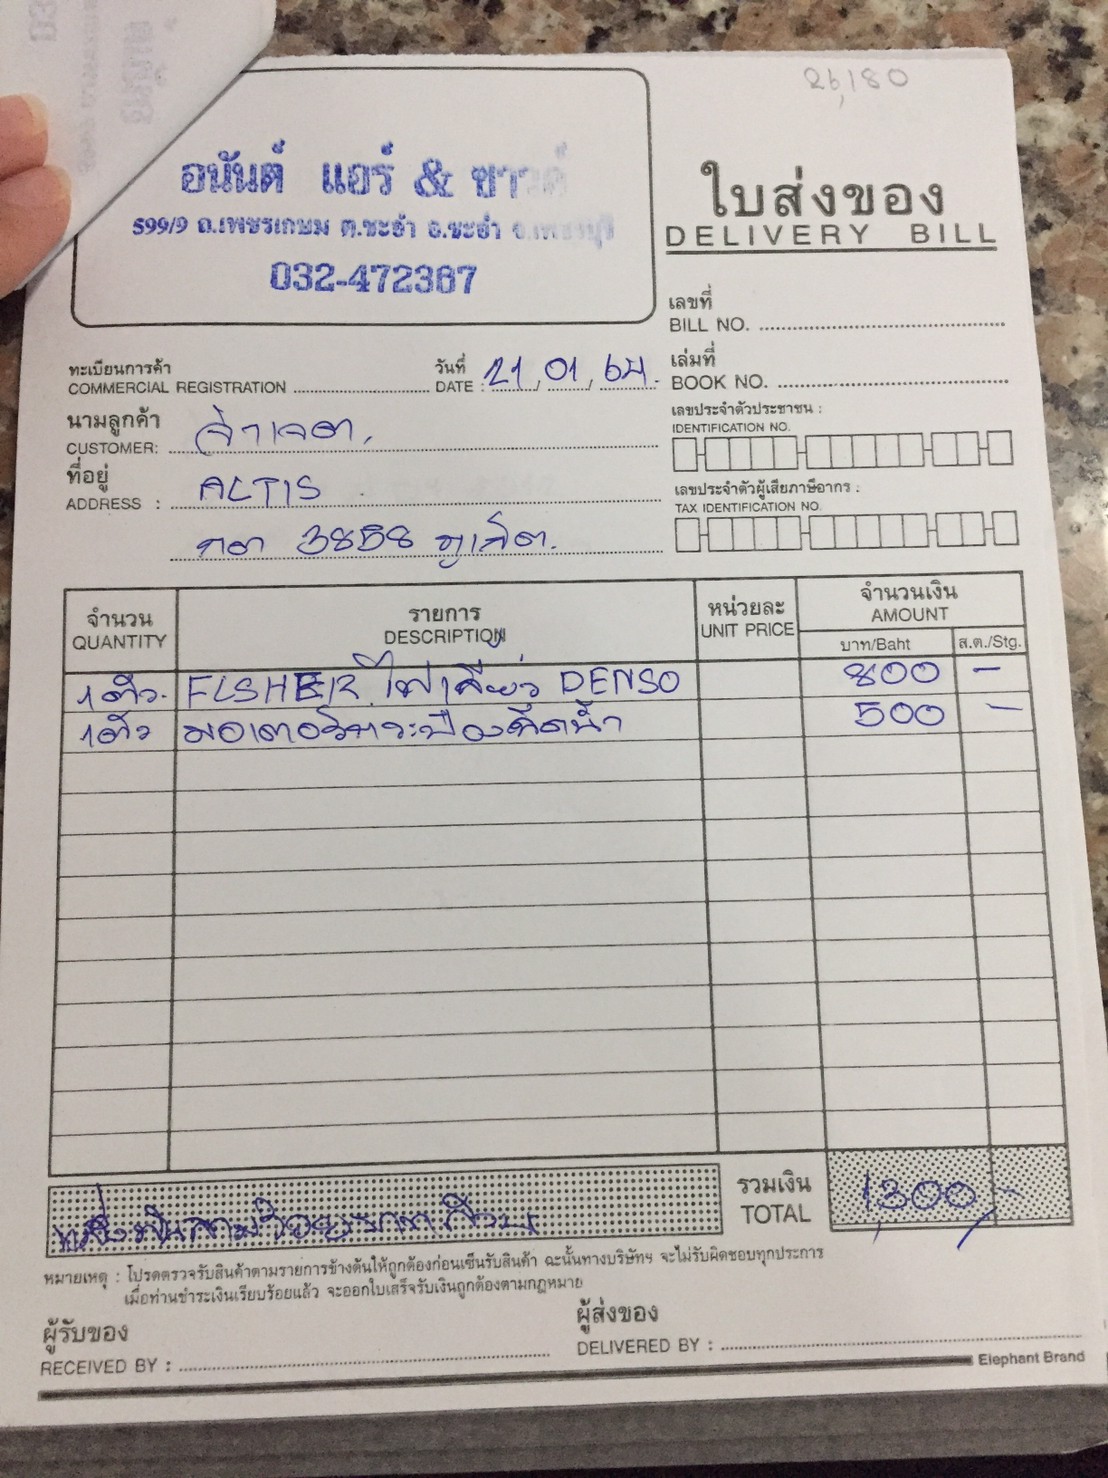 26,180
อนันต์ แอร์ & ซาวด์
599/9 ถ.เพชรเกษม ต.ชะอำ อ.ชะอำ จ.เพชรบุรี
032-472367
ใบส่งของ
DELIVERY BILL
เลขที่
BILL NO.
ทะเบียนการค้า
COMMERCIAL REGISTRATION
วันที่
DATE : 21/01/64.
เล่มที่
BOOK NO.
นามลูกค้า
CUSTOMER: จ่าเจต.
ที่อยู่
ADDRESS : ALTIS
3858 ภูเก็ต.
เลขประจำตัวประชาชน :
IDENTIFICATION NO.
เลขประจำตัวผู้เสียภาษีอากร :
TAX IDENTIFICATION NO.
จำนวน
QUANTITY
รายการ
DESCRIPTION
หน่วยละ
UNIT PRICE
จำนวนเงิน
AMOUNT
บาท/Baht
ส.ต./Stg.
1 ตัว. FLSHER ไฟเลี้ยว DENSO 800 –
1 ตัว มอเตอร์กระป๋องฉีดน้ำ 500 –
หนึ่งพันสามร้อยบาทถ้วน
รวมเงิน
TOTAL 1,300 –
หมายเหตุ : โปรดตรวจรับสินค้าตามรายการข้างต้นให้ถูกต้องก่อนเซ็นรับสินค้า ฉะนั้นทางบริษัทฯ จะไม่รับผิดชอบทุกประการ
เมื่อท่านชำระเงินเรียบร้อยแล้ว จะออกใบเสร็จรับเงินถูกต้องตามกฎหมาย
ผู้รับของ
RECEIVED BY :
ผู้ส่งของ
DELIVERED BY :
Elephant Brand